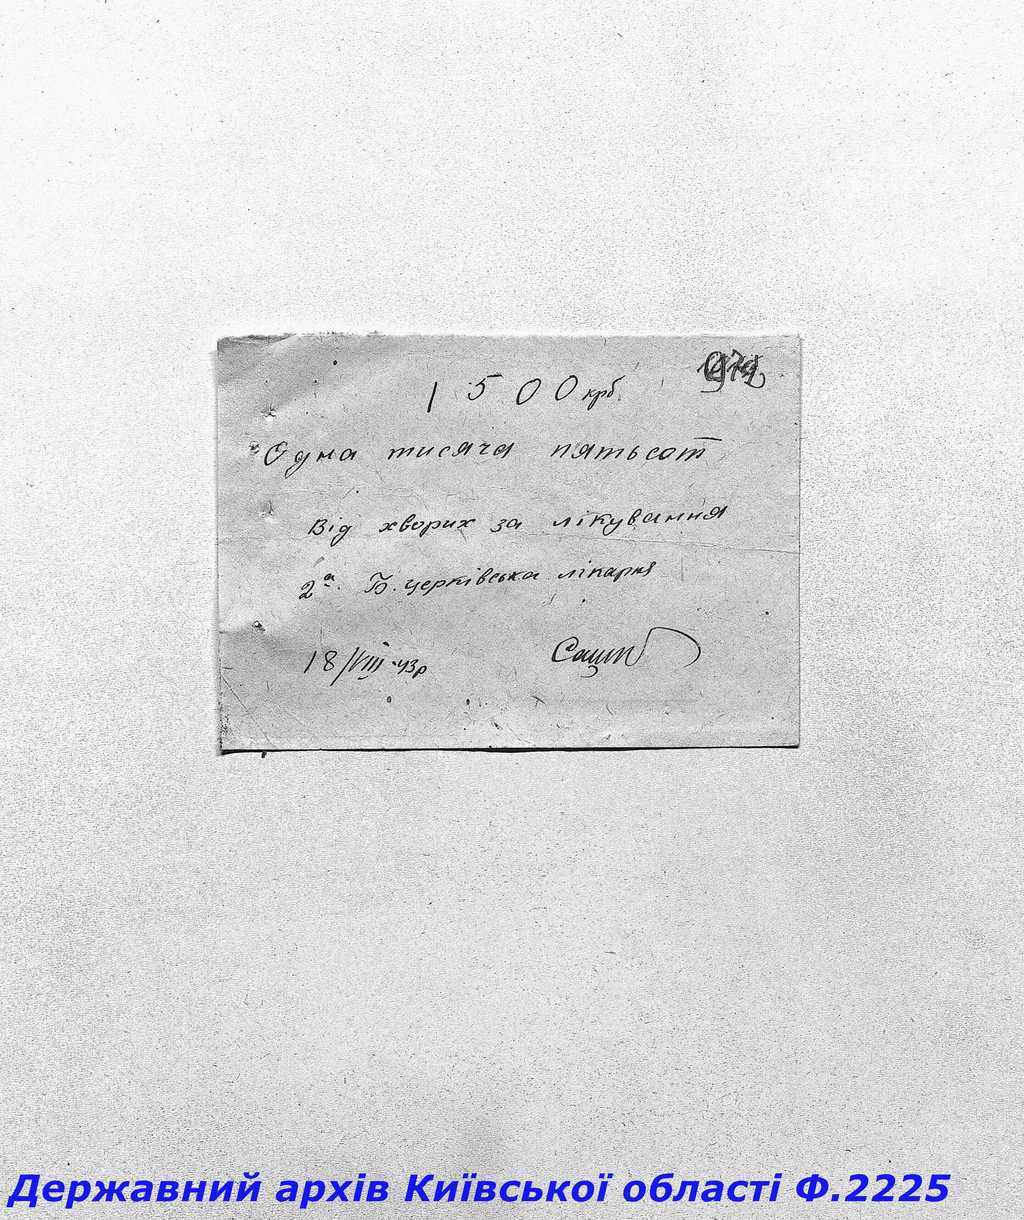 1500 крб
Одна тисяча пятьсот
Від хворих за лікування
2а. Б. церківська лікарня
18/VIII-43р
Державний архів Київської області Ф.2225